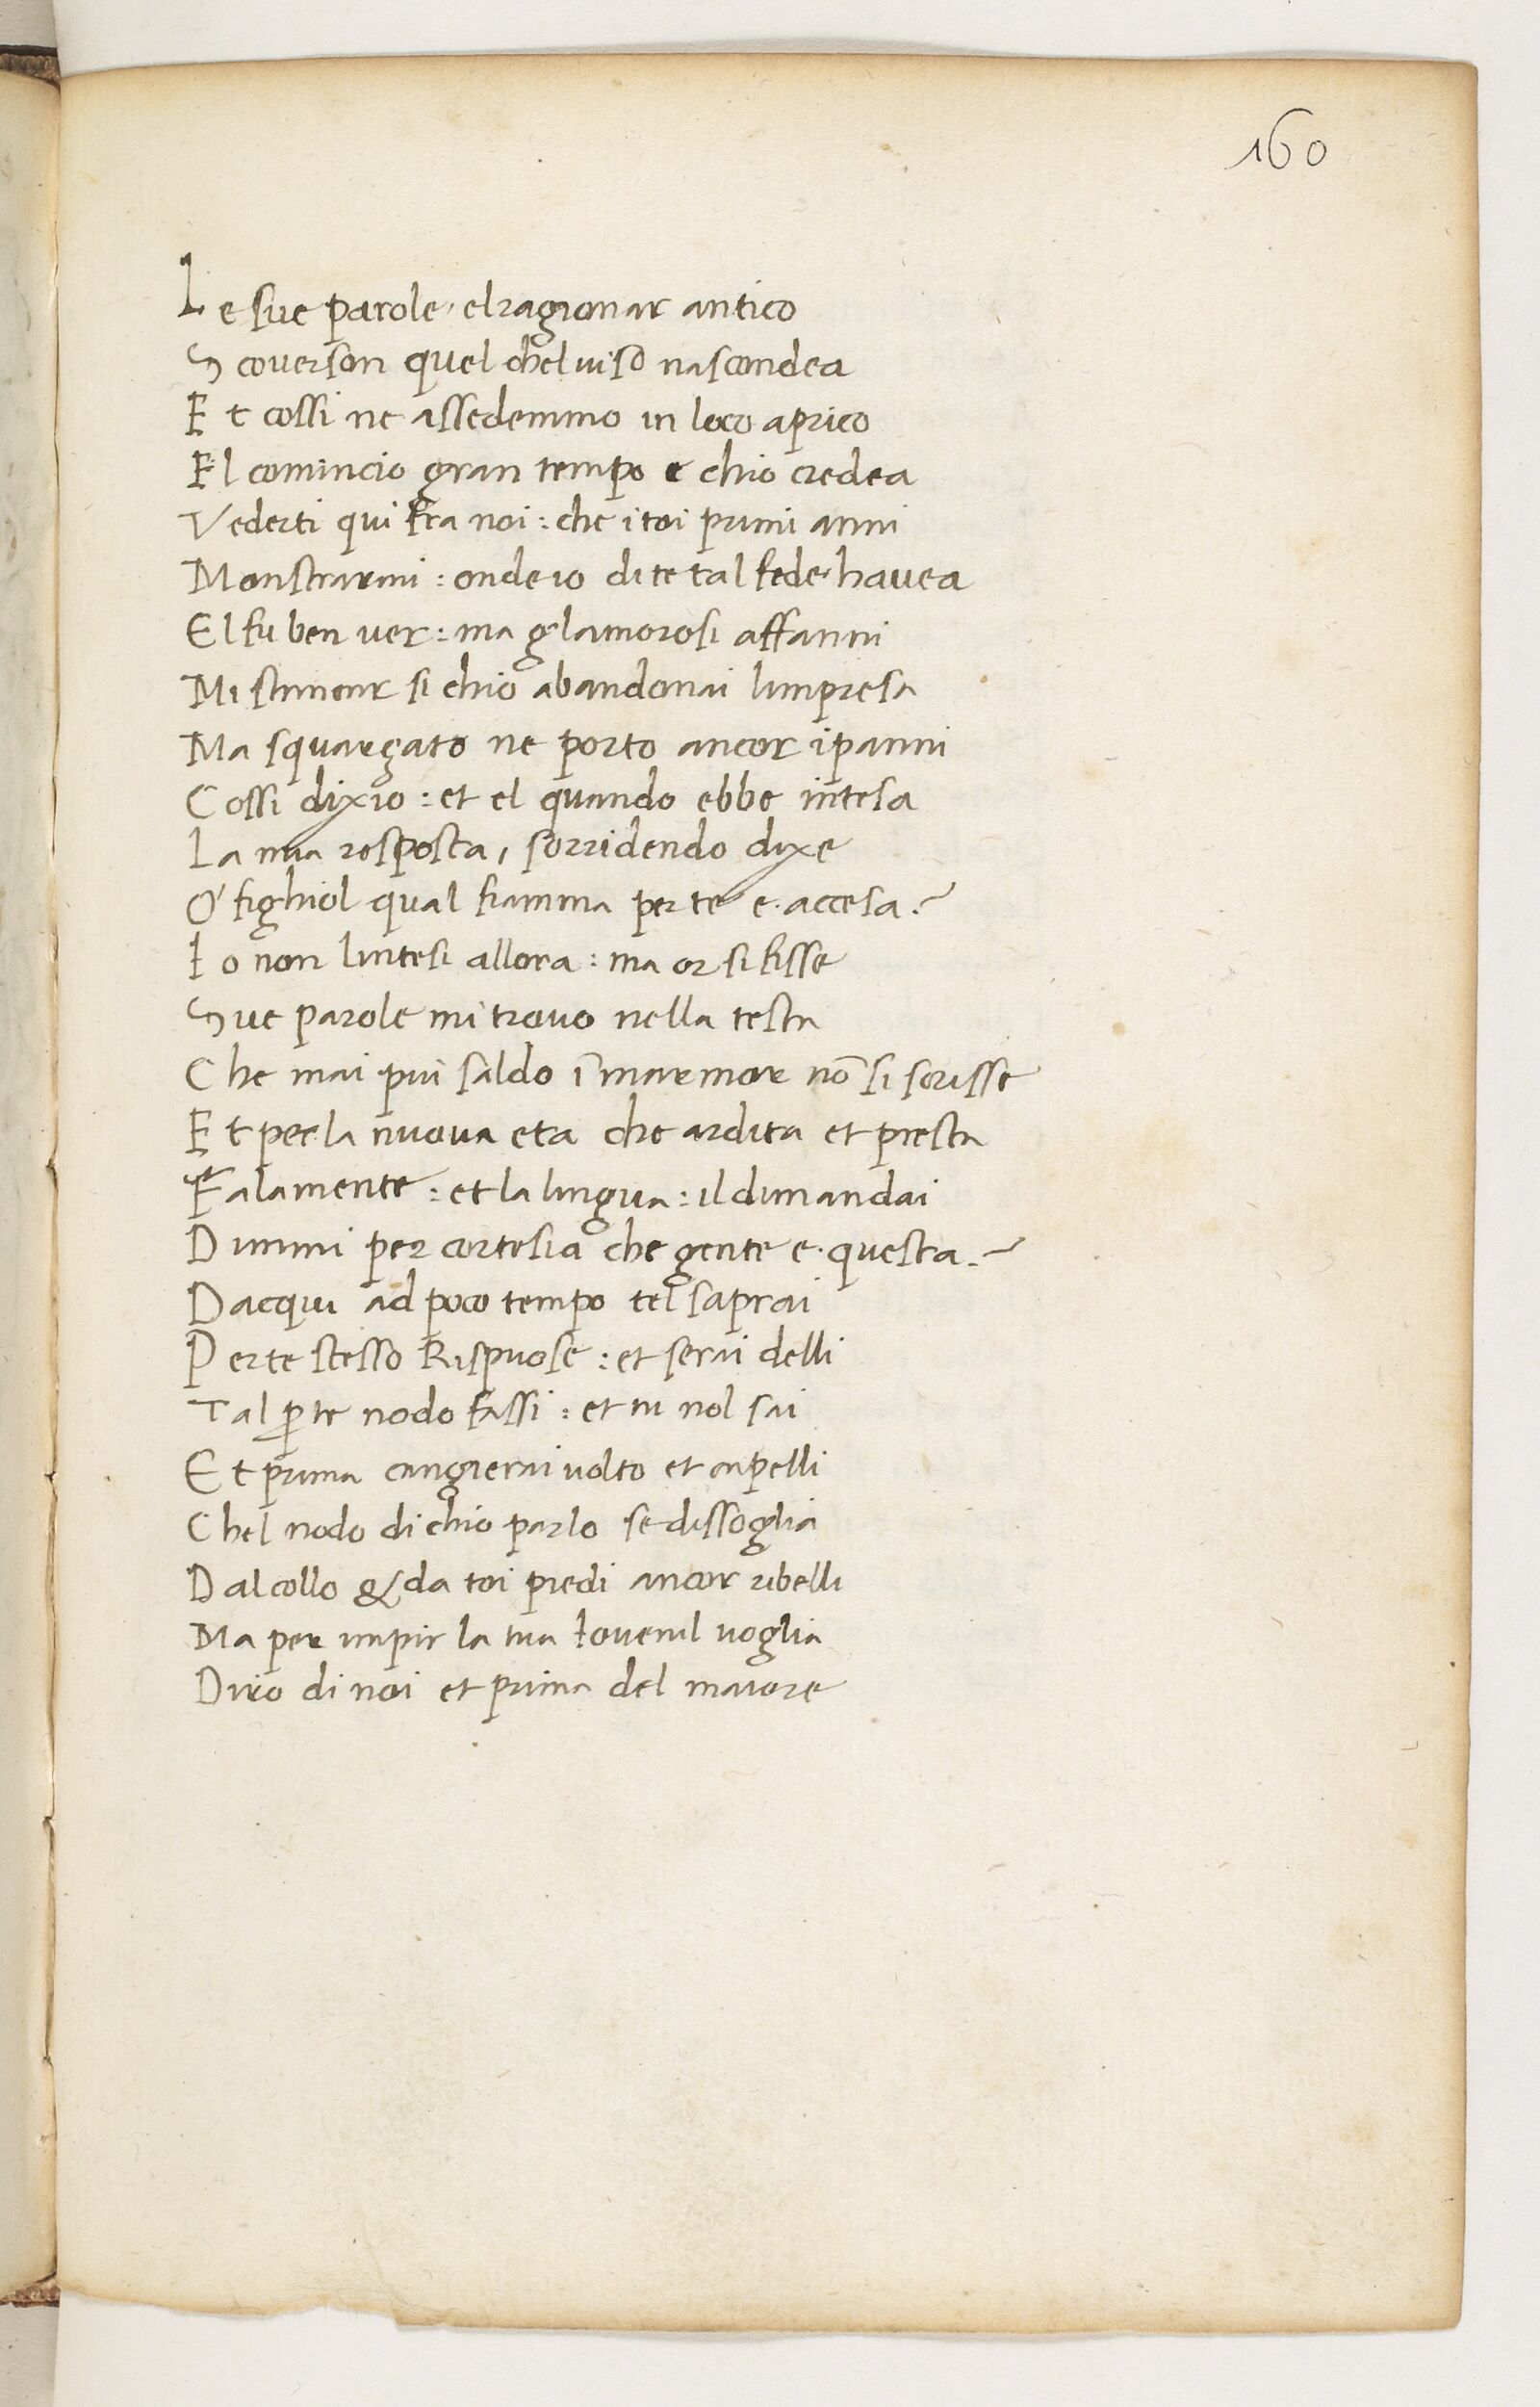 160
Le sue parole, el ragionar antico
Scoverson quel chel viso nascondea
Et cossi ne assedemmo in loco aprico
El comincio gran tempo e chio credea
Vederti qui fra noi : che i toi primi anni
Monstrarmi : onde io di te tal fede havea
El fu ben ver : ma gl amorosi affanni
Mi stimenr si chio abandonai limpresa
Ma squarçato ne porto ancor i panni
Cossi dixio : et el quando ebbe intesa
La mia resposta, sorridendo dixe
O' fighiol qual fiamma per te e. accesa.?
Io non lintesi allora : ma or si fisse
Sue parole mi trovo nella testa
Che mai piu saldo ī marmor nō si scrisse
Et per la nuova eta che ardita et presta
Fa la mente : et la lingua : il dimandai
Dimmi per cortesia che gente e. questa.?
Dacqui ad poco tempo tel saprai
Per te stesso Rispuose : et serai delli
Tal ꝑ te nodo fassi : et tu nol sai
Et prima cangierai volto et capelli
Chel nodo di chio parlo se dissoglia
Dal collo & da toi piedi ancor ribelli
Ma per impir la tua Iovenil voglia
Diro di noi et prima del maiore